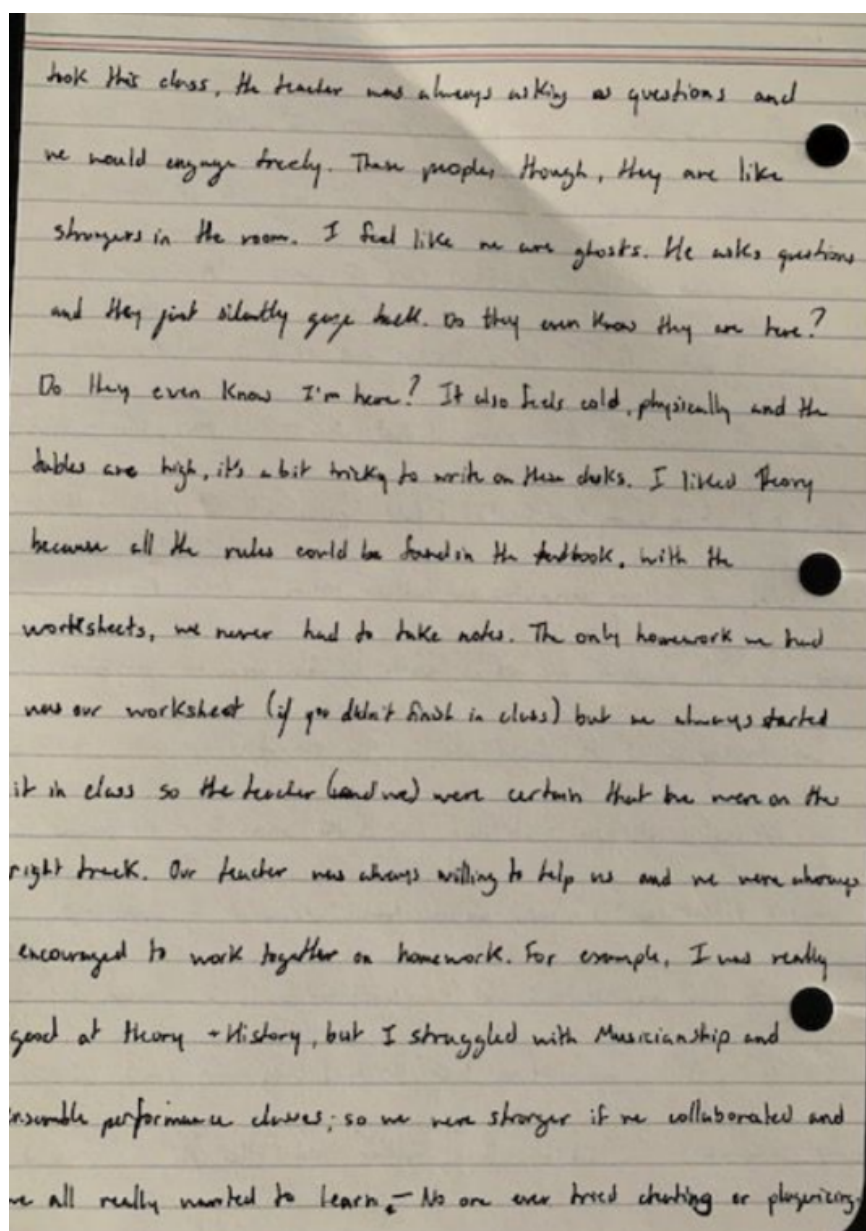 took this class, the teacher was always asking us questions and
we would engage freely. These people, though, they are like
strangers in the room. I feel like we are ghosts. He asks questions
and they just silently gaze back. Do they even know they are here?
Do they even know I'm here? It also feels cold, physically and the
tables are high, it's a bit tricky to write on these desks. I liked Theory
because all the rules could be found in the textbook, with the
worksheets, we never had to take notes. The only homework we had
was our worksheet (if you didn't finish in class) but we always started
it in class so the teacher (and we) were certain that we were on the
right track. Our teacher was always willing to help us and we were always
encouraged to work together on homework. For example, I was really
good at theory + History, but I struggled with Musicianship and
ensemble performance classes; so we were stronger if we collaborated and
we all really wanted to learn. - No one ever tried cheating or plagerizing.